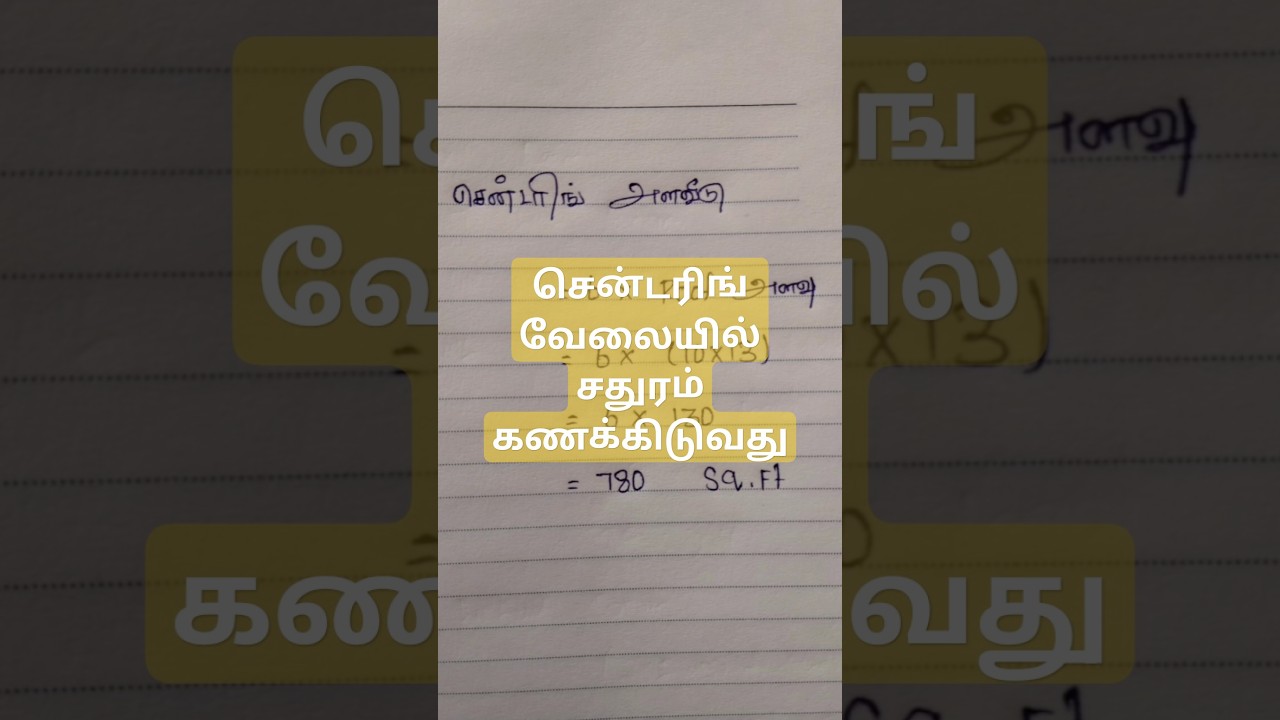 சென்டரிங் அளவீடு
சென்டரிங்
வேலையில்
சதுரம்
கணக்கிடுவது
அளவு
= 6 x (10x13)
= 6 x 130
= 780 Sq.Ft